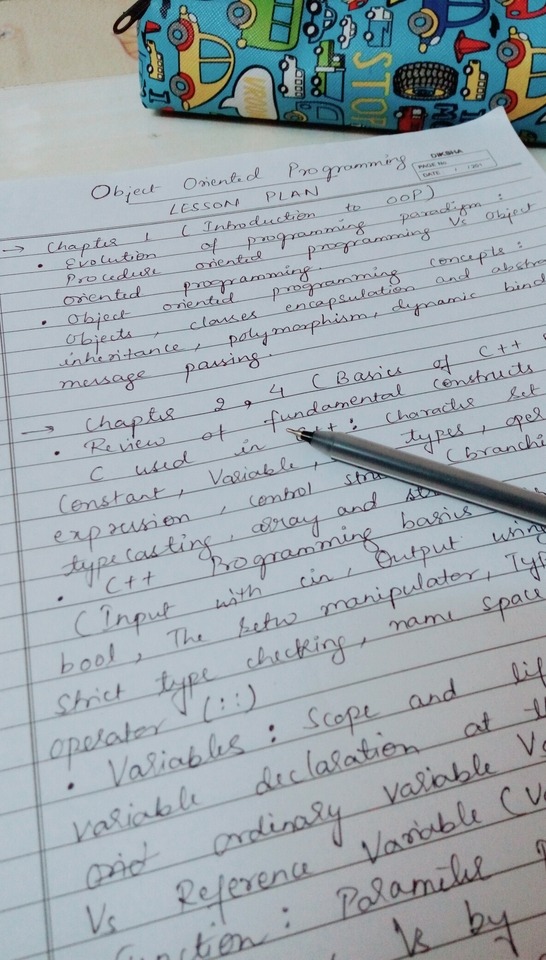 STOP
DIKSHA
PAGE No
DATE / /201
Object Oriented Programming
LESSON PLAN
→ Chapter 1 ( Introduction to OOP)
• Evolution of programming paradigm :
Procedure oriented programming Vs Object
oriented programming.
• Object oriented programming concepts :
Objects, classes encapsulation and abstra
inheritance, polymorphism, dynamic bind
message passing.
→ Chapter 2, 4 ( Basics of C++
• Review of fundamental constructs
C used in C++ : character set
Constant, Variable, types, oper
expression, control stru (branchi
typecasting, array and st
• C++ Programming basics
( Input with cin, Output using
bool, The setw manipulator, Typ
strict type checking, name space
operator (::)
• Variables : Scope and lif
variable declaration at th
and ordinary variable Vs
Vs Reference Variable (Va
function : Parameter
Vs by